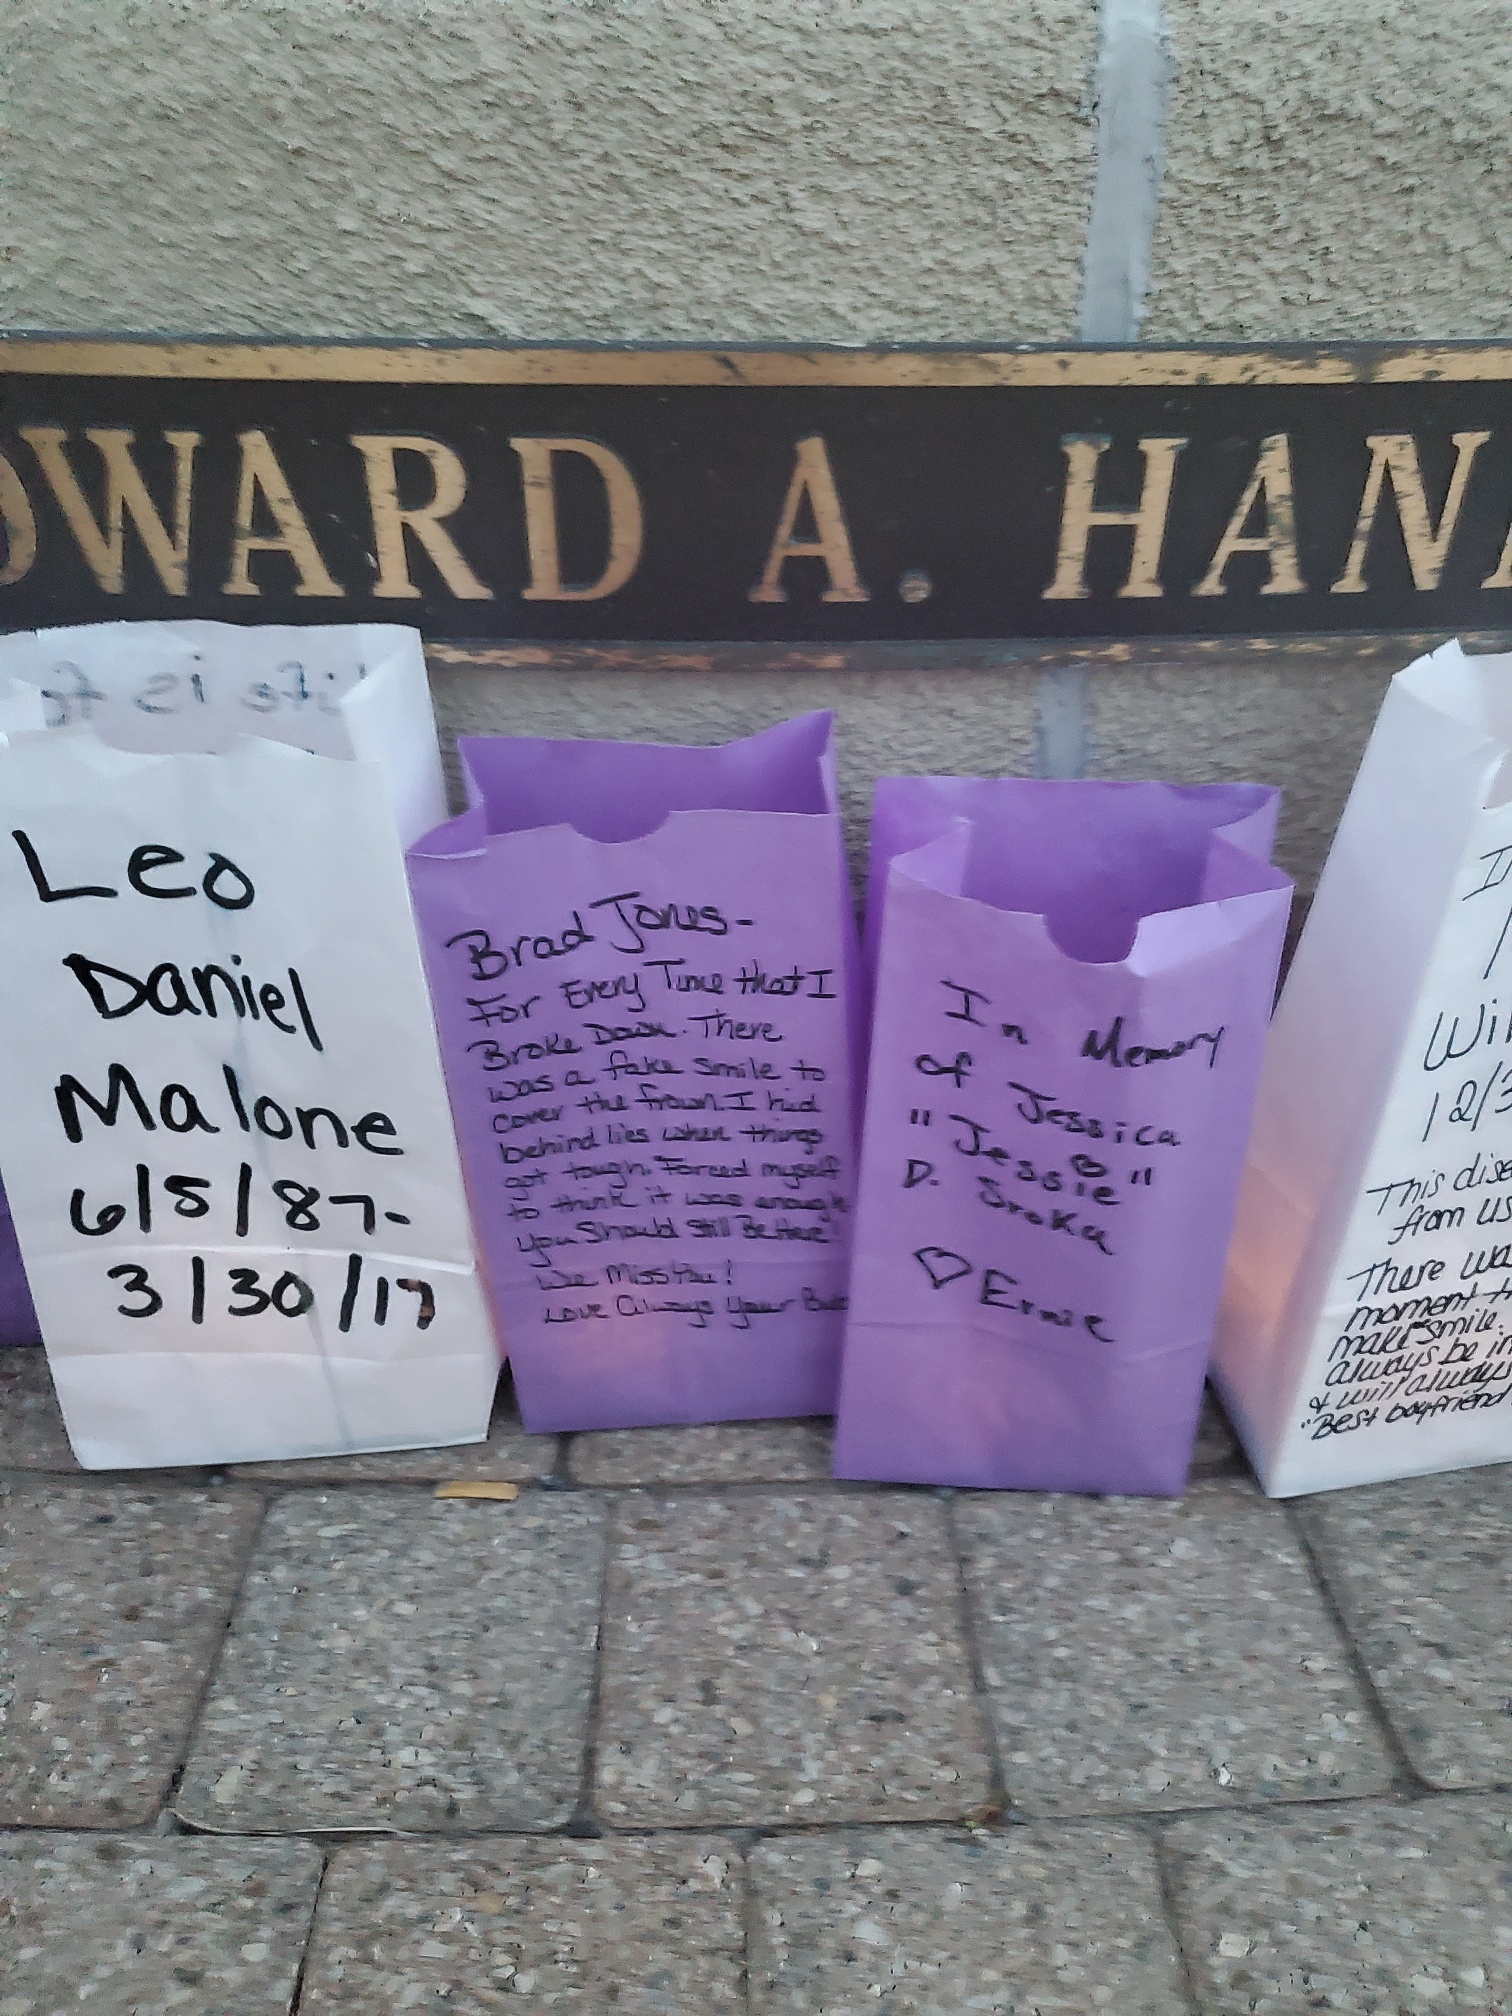 WARD A. HAN
Leo
Daniel
Malone
6/5/87-
3/30/17
Brad Jones-
For Every Time that I
Broke Down. There
was a fake smile to
cover the frown. I hid
behind lies when things
got tough. Forced myself
to think it was enough
you Should Still Be Here!
We Miss You!
Love Always Your
In Memory
of Jessica
"Jessie"
D. Sroka
♡ Ernie
12/3
This
from us
There
moment
make smile.
always be in
& will always
"Best boyfriend